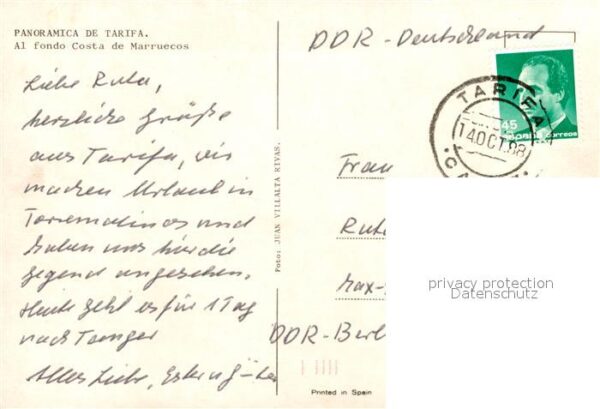 PANORAMICA DE TARIFA.
Al fondo Costa de Marruecos
Liebe Ruta,
herzliche Grüße
aus Tarifa, wir
machen Urlaub in
Torremolinos und
haben uns hier die
Gegend angesehen.
Heute geht es für 1 Tag
nach Tanger
Alles Liebe,
Foto: JUAN VILLALTA RIVAS.
DDR - Deutschland
45
España correos
TARIFA
14 OCT. 88
Frau
DDR-Berl
privacy protection
Datenschutz
Printed in Spain